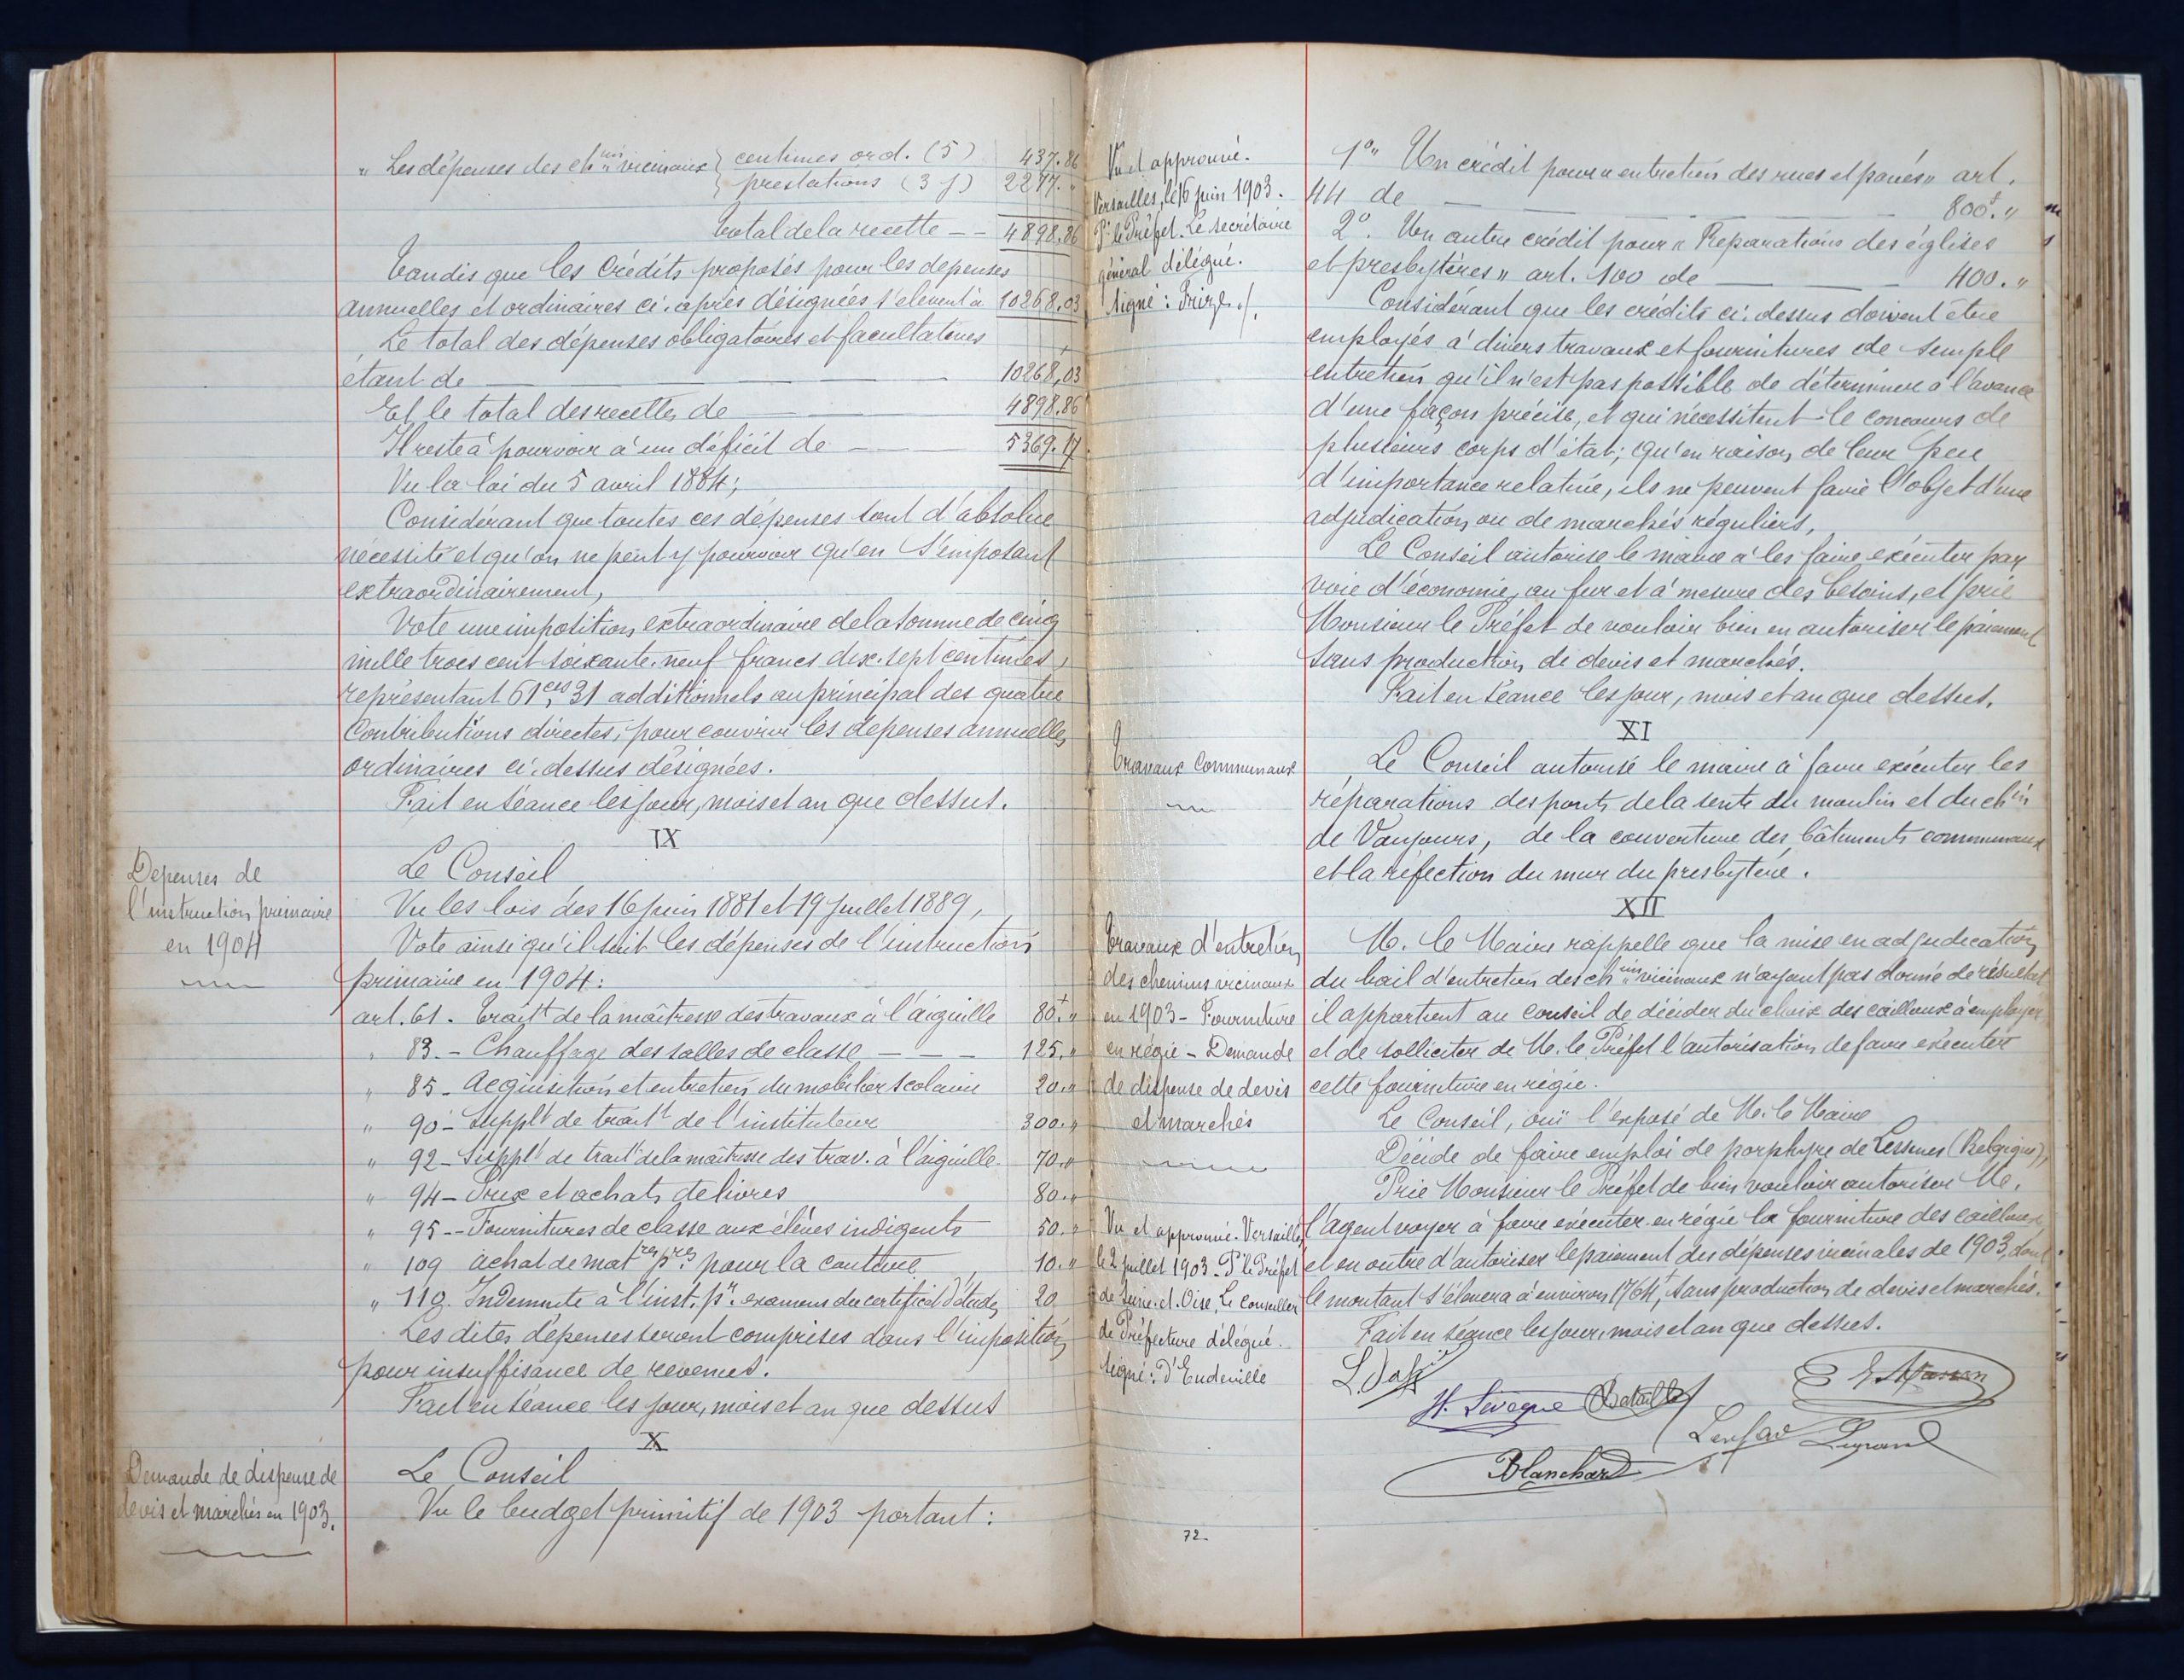 " Les dépenses des ch.ins vicinaux { centimes ord. (5) 437.86
prestations (3 j) 2277. "
Total de la recette — — 4898.86
Tandis que les crédits proposés pour les dépenses
annuelles et ordinaires ci-après désignées s'élèvent à 10268.03
Le total des dépenses obligatoires et facultatives
étant de — — — — 10268,03
Et le total des recettes de — — 4898.86
Il reste à pourvoir à un déficit de — — 5369.17
Vu la loi du 5 avril 1884;
Considérant que toutes ces dépenses sont d'absolue
nécessité et qu'on ne peut y pourvoir qu'en s'imposant
extraordinairement,
Vote une imposition extraordinaire de la somme de cinq
mille trois cent soixante-neuf francs dix-sept centimes,
représentant 61ces,31 additionnels au principal des quatre
Contributions directes, pour couvrir les dépenses annuelles
ordinaires ci-dessus désignées.
Fait en séance les jour, mois et an que dessus.
IX
Dépenses de
l'instruction primaire
en 1904
Le Conseil
Vu les lois des 16 juin 1881 et 19 juillet 1889,
Vote ainsi qu'il suit les dépenses de l'instruction
primaire en 1904:
art. 61. Trait.t de la maîtresse des travaux à l'aiguille 80f. "
" 83. - Chauffage des salles de classe — — — 125. "
" 85 - Acquisition et entretien du mobilier scolaire 20. "
" 90 - Suppl.t de trait.t de l'instituteur 300. "
" 92 - Suppl.t de trait.t de la maîtresse des trav. à l'aiguille 70. "
" 94 - Prix et achats de livres 80. "
" 95 - - Fournitures de classe aux élèves indigents 50. "
" 109 achat de mat.res p.res pour la couture 10. "
" 119. Indemnité à l'inst. p.r examens du certificat d'études 20
Les dites dépenses seront comprises dans l'imposition
pour insuffisance de revenus.
Fait en séance les jour, mois et an que dessus
X
Demande de dispense de
devis et marchés en 1903.
Le Conseil
Vu le budget primitif de 1903 portant:
Vu et approuvé.
Versailles, le 16 juin 1903.
P.r le Préfet. Le secrétaire
général délégué.
Signé:
1°" Un crédit pour "entretien des rues et pavés" art.
44 de — — — — 800f. "
2°. Un autre crédit pour "Réparations des églises
et presbytères" art. 100 de — — 400. "
Considérant que les crédits ci-dessus doivent être
employés à divers travaux et fournitures de simple
entretien qu'il n'est pas possible de déterminer à l'avance
d'une façon précise, et qui nécessitent le concours de
plusieurs corps d'état; qu'en raison de leur peu
d'importance relative, ils ne peuvent faire l'objet d'une
adjudication ou de marchés réguliers,
Le Conseil autorise le maire à les faire exécuter par
voie d'économie, au fur et à mesure des besoins, et prie
Monsieur le Préfet de vouloir bien en autoriser le paiement
sans production de devis et marchés.
Fait en séance les jour, mois et an que dessus.
XI
Travaux Communaux
Le Conseil autorise le maire à faire exécuter les
réparations des ponts de la sente du moulin et du ch.in
de Vaujours, de la couverture des bâtiments communaux
et la réfection du mur du presbytère.
XII
Travaux d'entretien
des chemins vicinaux
en 1903 - Fourniture
en régie - Demande
de dispense de devis
et marchés
M. le Maire rappelle que la mise en adjudication
du bail d'entretien des ch.ins vicinaux n'ayant pas donné de résultat
il appartient au conseil de décider du choix des cailloux à employer
et de solliciter de M. le Préfet l'autorisation de faire exécuter
cette fourniture en régie.
Le Conseil, ouï l'exposé de M. le Maire
Décide de faire emploi de porphyre de Lessines (Belgique),
Prie Monsieur le Préfet de bien vouloir autoriser M.
l'agent voyer à faire exécuter en régie la fourniture des cailloux,
et en outre d'autoriser le paiement des dépenses vicinales de 1903, dont
le montant s'élèvera à environ 1764f, sans production de devis et marchés.
Fait en séance les jour, mois et an que dessus.
Vu et approuvé. Versailles
le 2 juillet 1903 - P.r le Préfet
de Seine-et-Oise, Le Conseiller
de Préfecture délégué.
Signé: d'Endeville
H. Lévêque
Bataille
E. Masson
Legrand
Blanchard
72.